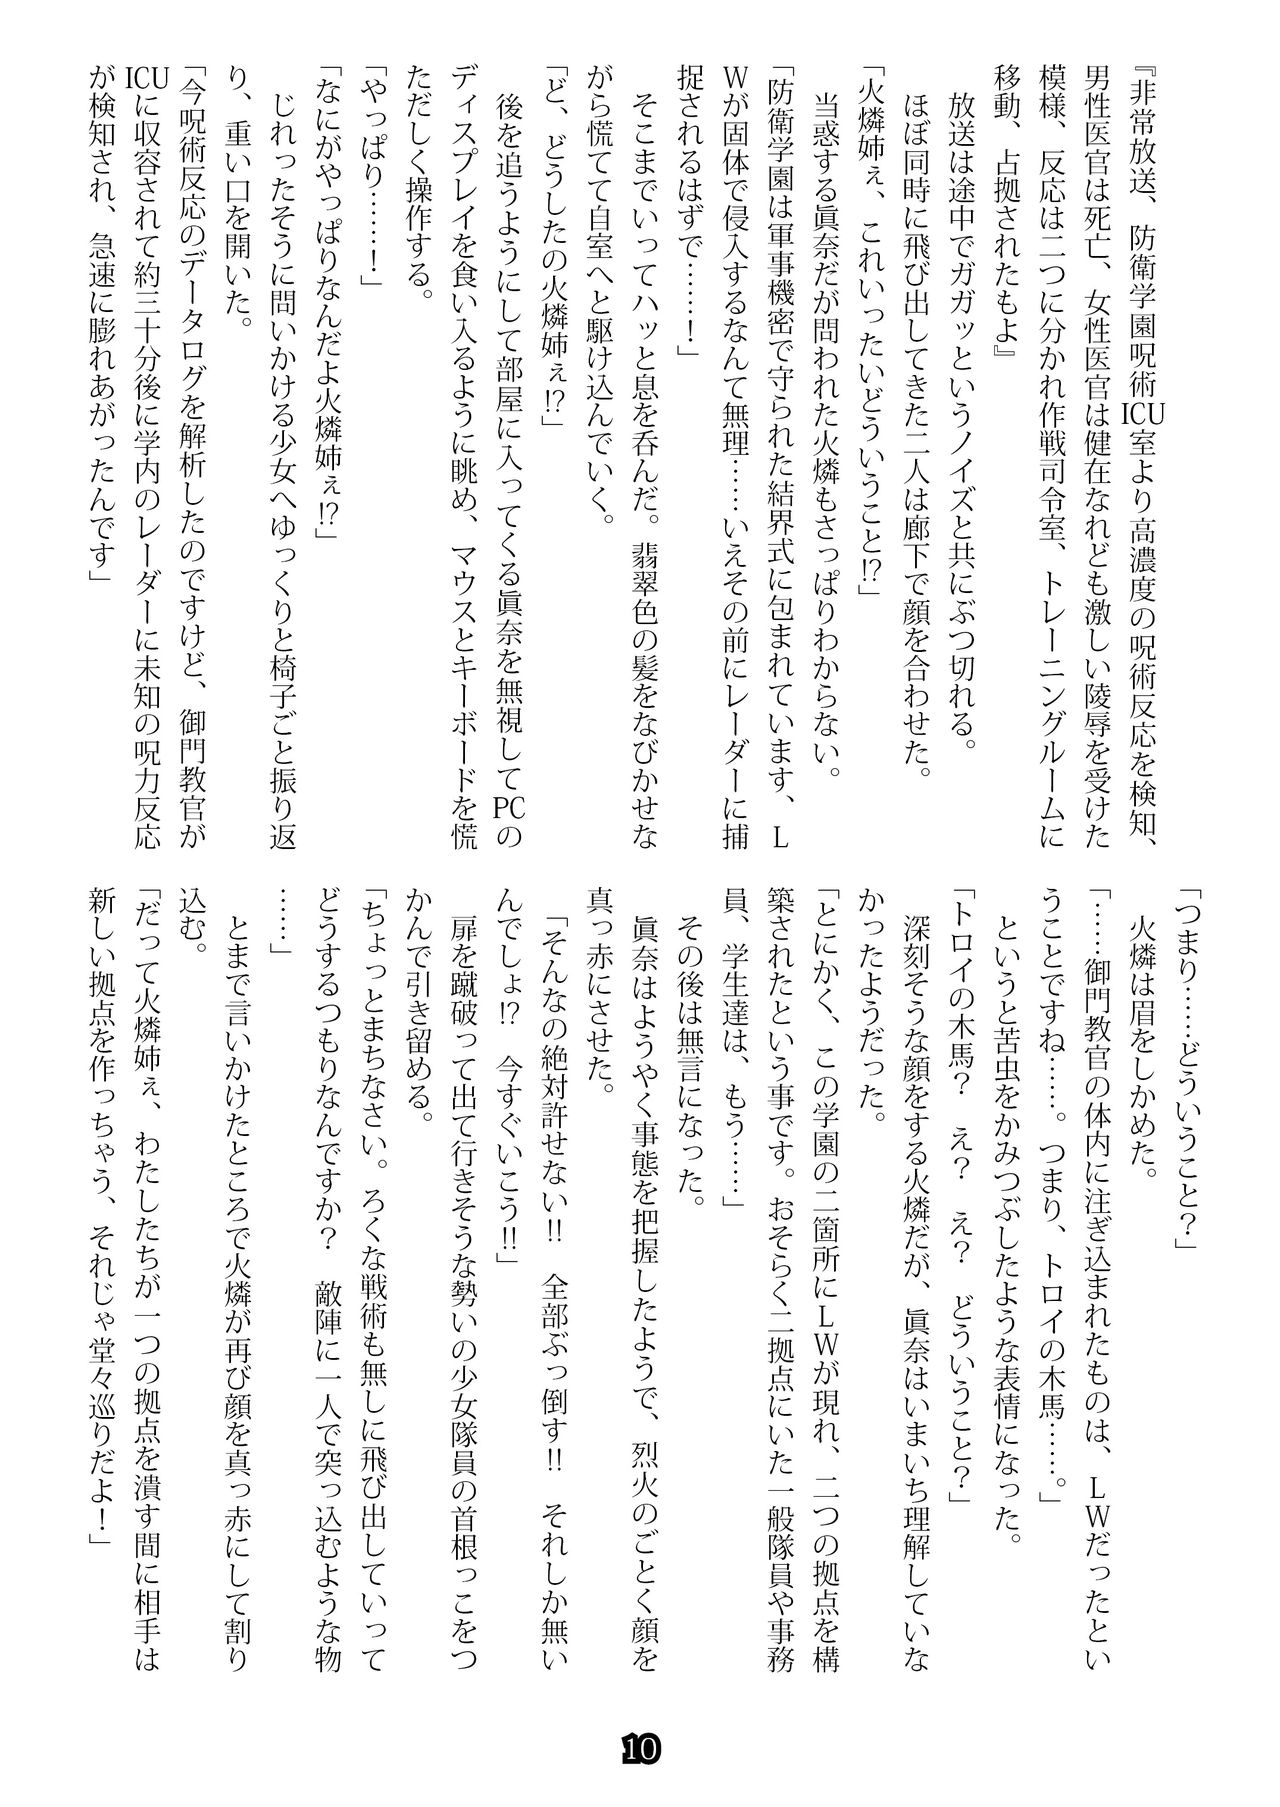 『非常放送、防衛学園呪術ICU室より高濃度の呪術反応を検知、
男性医官は死亡、女性医官は健在なれども激しい陵辱を受けた
模様、反応は二つに分かれ作戦司令室、トレーニングルームに
移動、占拠されたもよ』
　放送は途中でガガッというノイズと共にぶつ切れる。
　ほぼ同時に飛び出してきた二人は廊下で顔を合わせた。
「火燐姉ぇ、これいったいどういうこと⁉」
　当惑する眞奈だが問われた火燐もさっぱりわからない。
「防衛学園は軍事機密で守られた結界式に包まれています、L
Wが固体で侵入するなんて無理……いえその前にレーダーに捕
捉されるはずで……！」
　そこまでいってハッと息を呑んだ。翡翠色の髪をなびかせな
がら慌てて自室へと駆け込んでいく。
「ど、どうしたの火燐姉ぇ⁉」
　後を追うようにして部屋に入ってくる眞奈を無視してPCの
ディスプレイを食い入るように眺め、マウスとキーボードを慌
ただしく操作する。
「やっぱり……！」
「なにがやっぱりなんだよ火燐姉ぇ⁉」
　じれったそうに問いかける少女へゆっくりと椅子ごと振り返
り、重い口を開いた。
「今呪術反応のデータログを解析したのですけど、御門教官が
ICUに収容されて約三十分後に学内のレーダーに未知の呪力反応
が検知され、急速に膨れあがったんです」
「つまり……どういうこと？」
　火燐は眉をしかめた。
「……御門教官の体内に注ぎ込まれたものは、LWだったとい
うことですね……。つまり、トロイの木馬……。」
　というと苦虫をかみつぶしたような表情になった。
「トロイの木馬？　え？　え？　どういうこと？」
　深刻そうな顔をする火燐だが、眞奈はいまいち理解していな
かったようだった。
「とにかく、この学園の二箇所にLWが現れ、二つの拠点を構
築されたという事です。おそらく二拠点にいた一般隊員や事務
員、学生達は、もう……」
　その後は無言になった。
　眞奈はようやく事態を把握したようで、烈火のごとく顔を
真っ赤にさせた。
　「そんなの絶対許せない‼　全部ぶっ倒す‼　それしか無い
んでしょ⁉　今すぐいこう‼」
　扉を蹴破って出て行きそうな勢いの少女隊員の首根っこをつ
かんで引き留める。
「ちょっとまちなさい。ろくな戦術も無しに飛び出していって
どうするつもりなんですか？　敵陣に一人で突っ込むような物
……」
　とまで言いかけたところで火燐が再び顔を真っ赤にして割り
込む。
「だって火燐姉ぇ、わたしたちが一つの拠点を潰す間に相手は
新しい拠点を作っちゃう、それじゃ堂々巡りだよ！」
10